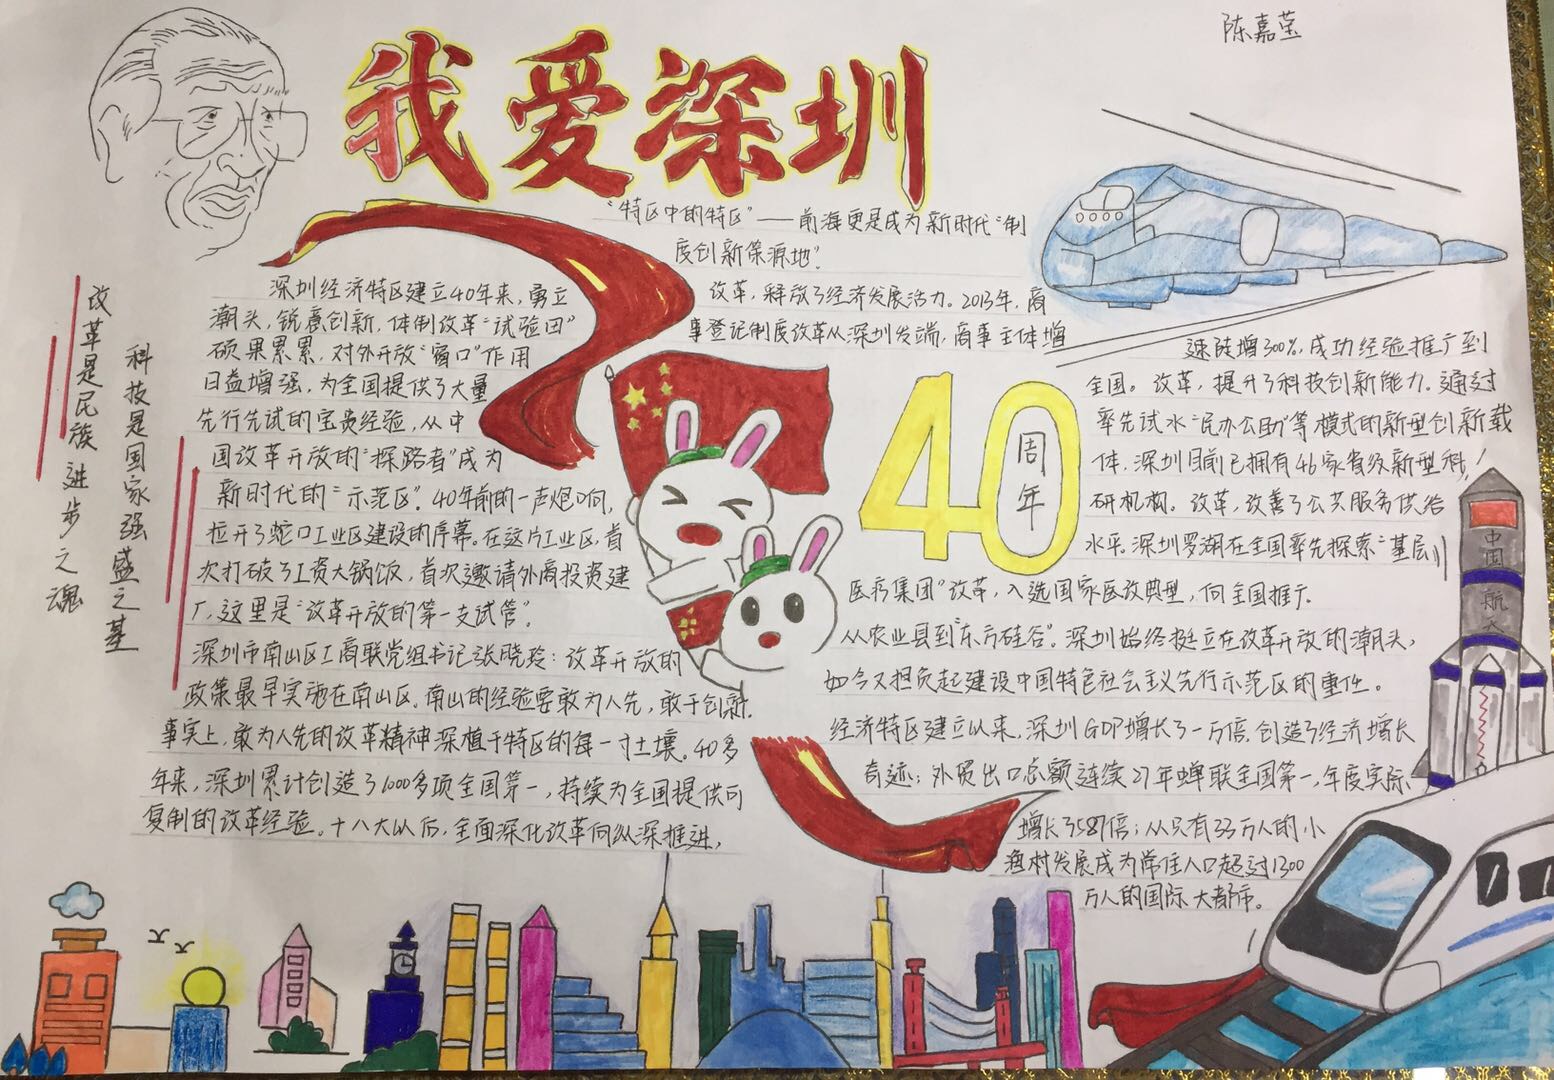 陈嘉莹
我爱深圳
“特区中的特区”——前海更是成为新时代“制
度创新策源地”。
深圳经济特区建立40年来，勇立
潮头，锐意创新，体制改革“试验田”
硕果累累，对外开放“窗口”作用
日益增强，为全国提供了大量
先行先试的宝贵经验，从中
国改革开放的“探路者”成为
新时代的“示范区”。40年前的一声炮响，
拉开了蛇口工业区建设的序幕。在这片工业区，首
次打破了工资大锅饭，首次邀请外商投资建
厂，这里是“改革开放的第一支试管”。
深圳市南山区工商联党组书记张晓玲：改革开放的
政策最早实施在南山区。南山的经验要敢为人先，敢于创新。
事实上，敢为人先的改革精神深植于特区的每一寸土壤。40多
年来，深圳累计创造了1000多项全国第一，持续为全国提供可
复制的改革经验。十八大以后，全面深化改革向纵深推进，
改革，释放了经济发展活力。2013年，商
事登记制度改革从深圳发端，商事主体增
速陡增300%，成功经验推广到
全国。改革，提升了科技创新能力。通过
率先试水“民办公助”等模式的新型创新载
体，深圳目前已拥有46家省级新型科
研机构。改革，改善了公共服务供给
水平。深圳罗湖在全国率先探索“基层
医疗集团”改革，入选国家医改典型，向全国推广。
从农业县到“东方硅谷”。深圳始终挺立在改革开放的潮头，
如今又担负起建设中国特色社会主义先行示范区的重任。
经济特区建立以来，深圳GDP增长了一万倍，创造了经济增长
奇迹；外贸出口总额连续27年蝉联全国第一，年度实际
增长了587倍；从只有33万人的小
渔村发展成为常住人口超过1300
万人的国际大都市。
改革是民族进步之魂
科技是国家强盛之基
40
周年
中国航天